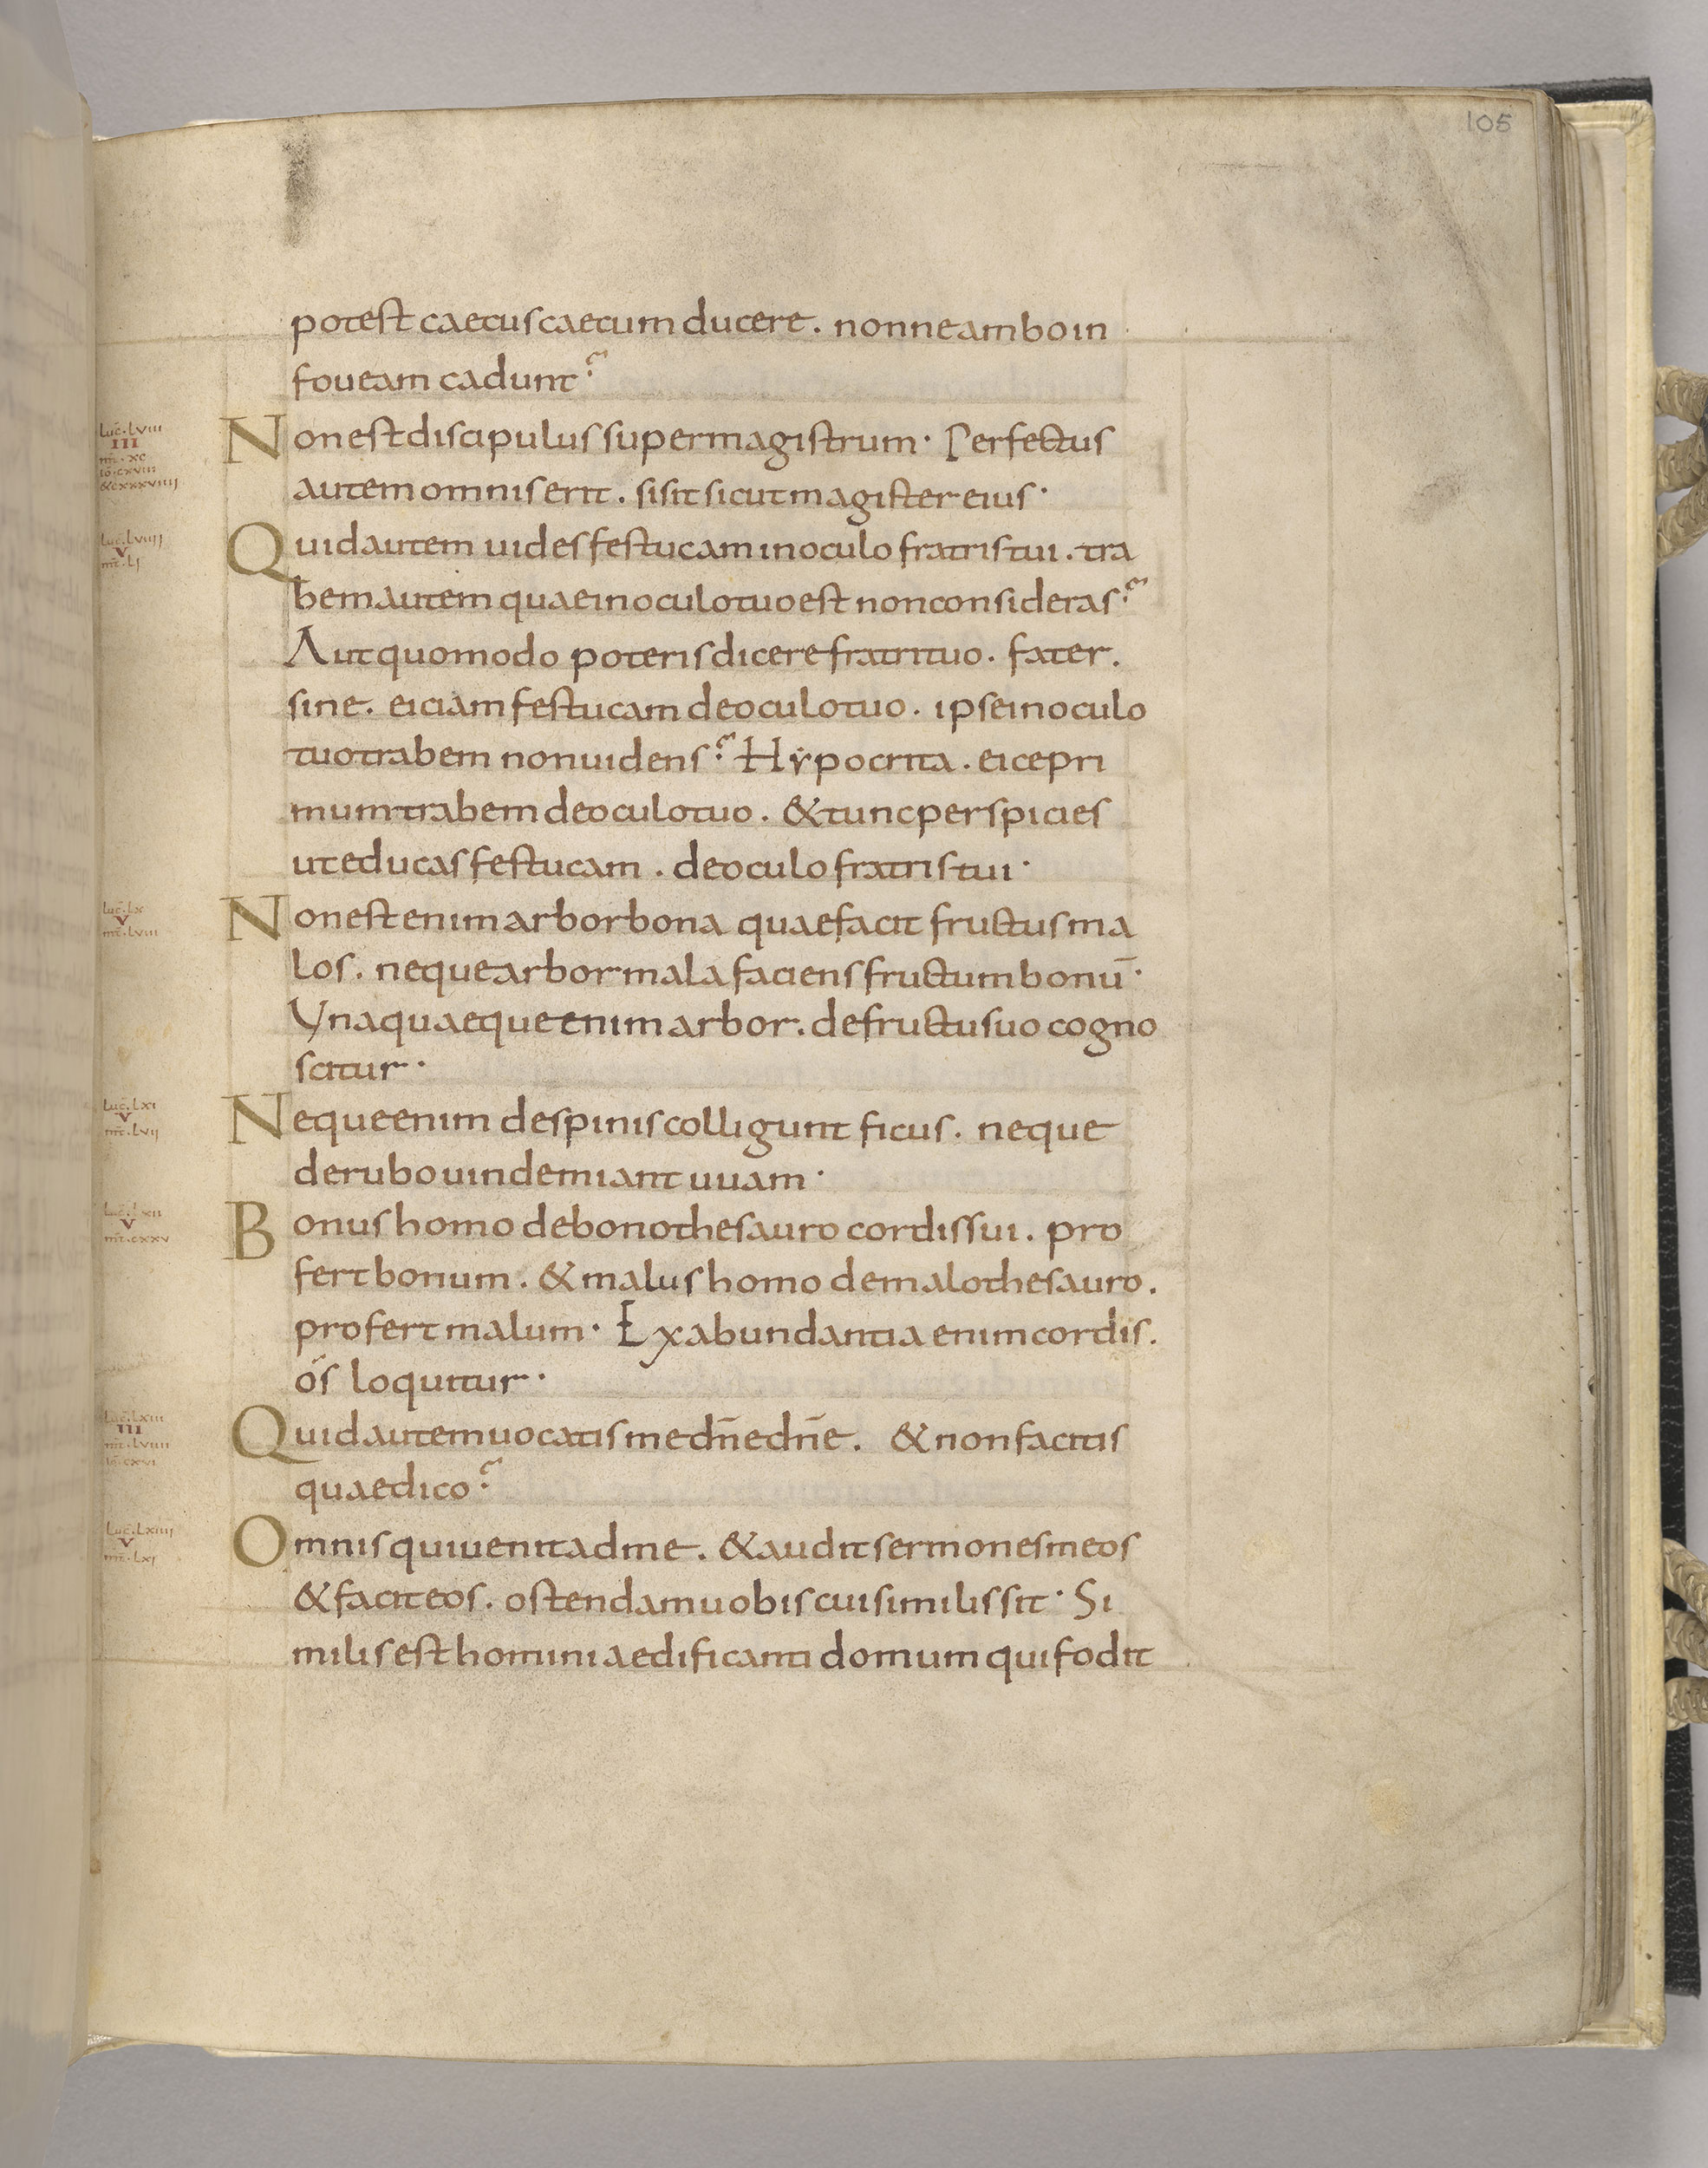 105
potest caecus caecum ducere. nonne ambo in
foueam cadunt?
Luc̄. LVIII
III
mt̄. XC
Iō. CXVIII
& CXXXVIIIJ
Non est discipulus super magistrum· Perfectus
autem omnis erit. si sit sicut magister eius·
Luc̄. LVIIIJ
V
mt̄. LJ
Quid autem uides festucam in oculo fratris tui. tra
bem autem quae in oculo tuo est non consideras?
Aut quomodo poteris dicere fratri tuo. frater.
sine. eiciam festucam de oculo tuo. ipse in oculo
tuo trabem non uidens? Hẏpocrita. eice pri
mum trabem de oculo tuo. & tunc perspicies
ut educas festucam. de oculo fratris tui·
Luc̄. LX
V
mt̄. LVIII
Non est enim arbor bona quae facit fructus ma
los. neque arbor mala faciens fructum bonū·
Vnaquaeque enim arbor. de fructu suo cogno
scitur·
Luc̄. LXI
V
mt̄. LVIJ
Neque enim de spinis colligunt ficus. neque
de rubo uindemiant uuam·
Luc̄. LXII
V
mt̄. CXXV
Bonus homo de bono thesauro cordis sui. pro
fert bonum. & malus homo de malo thesauro.
profert malum· Ex abundantia enim cordis.
ós loquitur·
Luc̄. LXIII
III
mt̄. LVIIII
Iō. CXVI
Quid autem uocatis me dn̄e dn̄e. & non facitis
quae dico?
Luc̄. LXIIIJ
V
mt̄. LXJ
Omnis qui uenit ad me. & audit sermones meos
& facit eos. ostendam uobis cui similis sit· Si
milis est homini aedificanti domum qui fodit